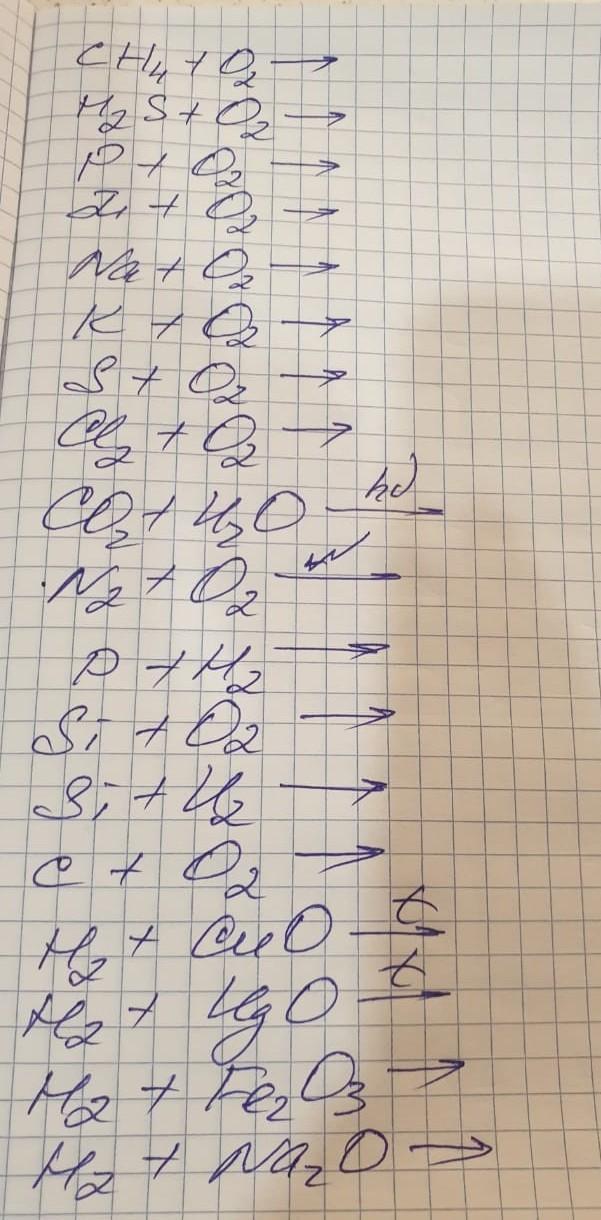 CH₄ + O₂ →
H₂S + O₂ →
P + O₂ →
+ O₂ →
Na + O₂ →
K + O₂ →
S + O₂ →
Cl₂ + O₂ →
CO₂ + H₂O hν →
N₂ + O₂ →
P + H₂ →
Si + O₂ →
Si + H₂ →
C + O₂ →
H₂ + CuO t →
H₂ + HgO t →
H₂ + Fe₂O₃ →
H₂ + Na₂O →